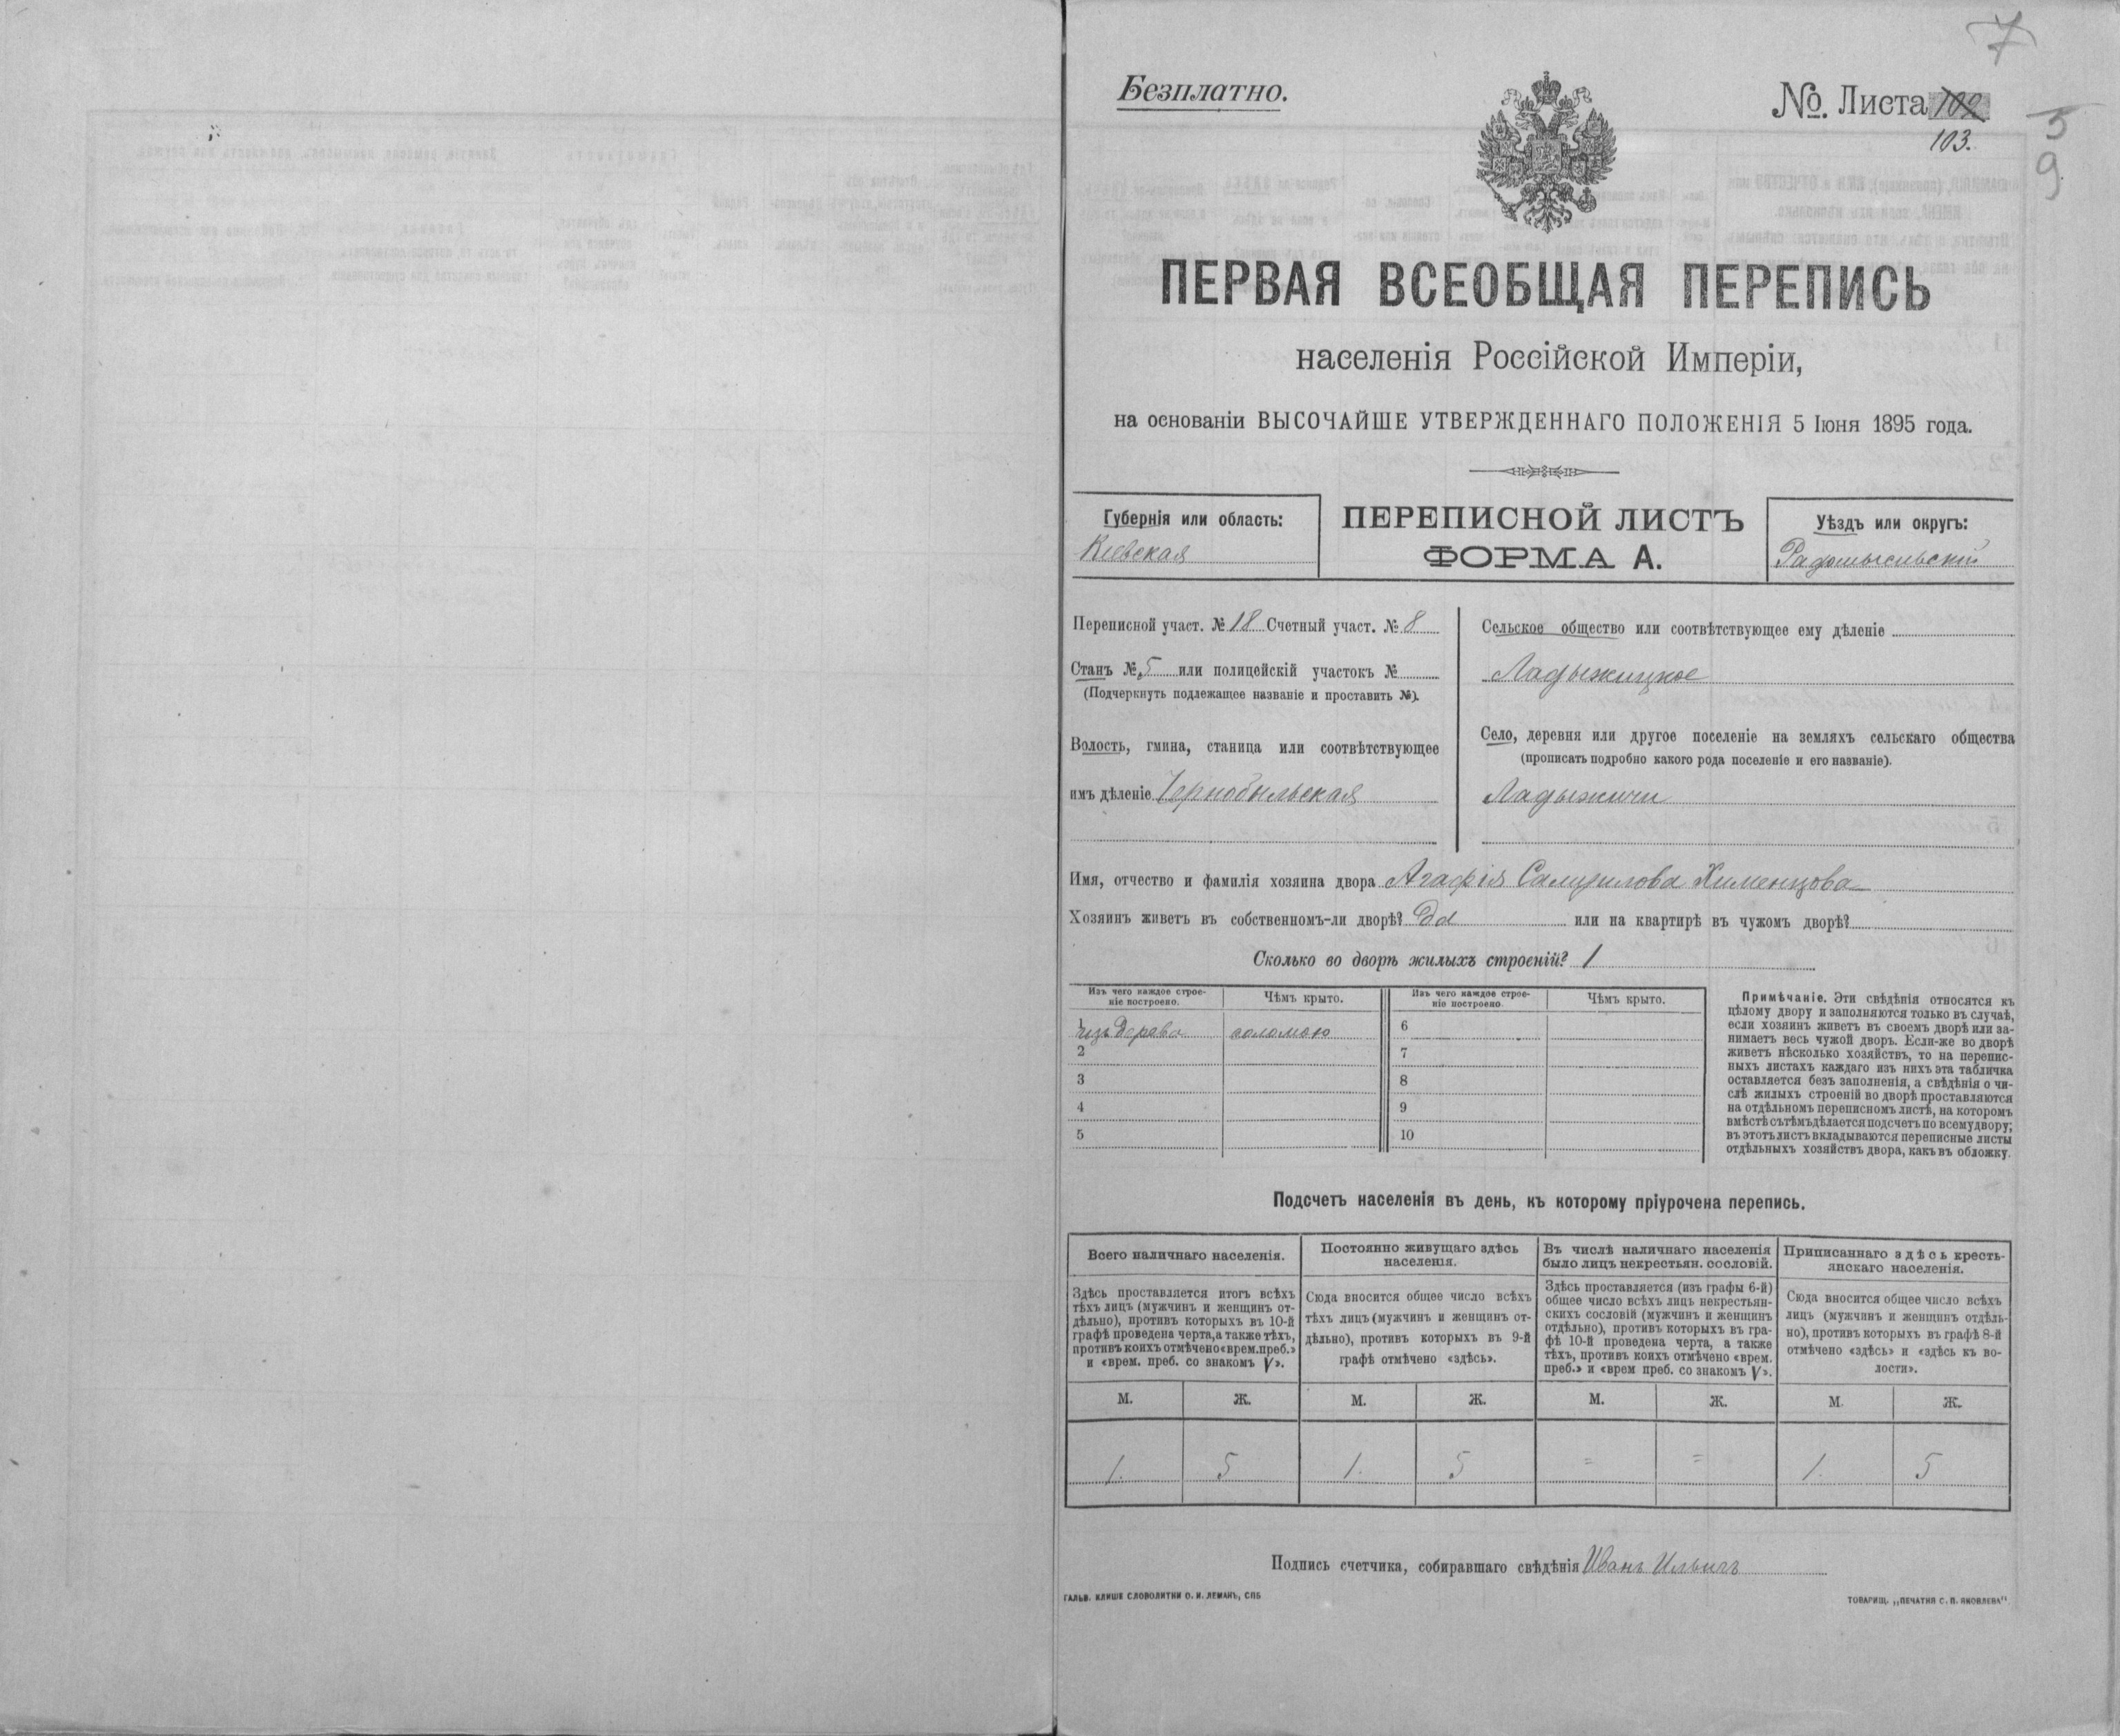 7
Безплатно.
№. Листа 102
103.
5
9
ПЕРВАЯ ВСЕОБЩАЯ ПЕРЕПИСЬ
населенія Россійской Имперіи,
на основаніи ВЫСОЧАЙШЕ УТВЕРЖДЕННАГО ПОЛОЖЕНІЯ 5 Іюня 1895 года.
Губернія или область:
Кіевская
ПЕРЕПИСНОЙ ЛИСТЪ
ФОРМА А.
Уѣздъ или округъ:
Радомысльскій
Переписной участ. № 18 Счетный участ. № 8
Станъ № 5 или полицейскій участокъ №
(Подчеркнуть подлежащее названіе и проставить №).
Волость, гмина, станица или соотвѣтствующее
имъ дѣленіе Чернобыльская
Сельское общество или соотвѣтствующее ему дѣленіе
Ладыжицкое
Село, деревня или другое поселеніе на земляхъ сельскаго общества
(прописать подробно какого рода поселеніе и его названіе).
Ладыжичи
Имя, отчество и фамилія хозяина двора Агафія
Хозяинъ живетъ въ собственномъ-ли дворѣ? Да или на квартирѣ въ чужомъ дворѣ?
Сколько во дворѣ жилыхъ строеній? 1
Изъ чего каждое строе-
ніе построено.
Чѣмъ крыто.
Изъ чего каждое строе-
ніе построено
Чѣмъ крыто.
1 изъ дерева соломою
2
3
4
5
6
7
8
9
10
Примѣчаніе. Эти свѣдѣнія относятся къ
цѣлому двору и заполняются только въ случаѣ,
если хозяинъ живетъ въ своемъ дворѣ или за-
нимаетъ весь чужой дворъ. Если-же во дворѣ
живетъ нѣсколько хозяйствъ, то на перепис-
ныхъ листахъ каждаго изъ нихъ эта табличка
оставляется безъ заполненія, а свѣдѣнія о чи-
слѣ жилыхъ строеній во дворѣ проставляются
на отдѣльномъ переписномъ листѣ, на которомъ
вмѣстѣ сътѣмъ дѣлается подсчетъ по всему двору;
въ этотъ листъ вкладываются переписные листы
отдѣльныхъ хозяйствъ двора, какъ въ обложку.
Подсчетъ населенія въ день, къ которому пріурочена перепись.
Всего наличнаго населенія.
Здѣсь проставляется итогъ всѣхъ
тѣхъ лицъ (мужчинъ и женщинъ от-
дѣльно), противъ которыхъ въ 10-й
графѣ проведена черта, а также тѣхъ,
противъ коихъ отмѣчено «врем. преб.»
и «врем. преб. со знакомъ V».
Постоянно живущаго здѣсь
населенія.
Сюда вносится общее число всѣхъ
тѣхъ лицъ (мужчинъ и женщинъ от-
дѣльно), противъ которыхъ въ 9-й
графѣ отмѣчено «здѣсь».
Въ числѣ наличнаго населенія
было лицъ некрестьян. сословій.
Здѣсь проставляется (изъ графы 6-й)
общее число всѣхъ лицъ некрестьян-
скихъ сословій (мужчинъ и женщинъ
отдѣльно), противъ которыхъ въ гра-
фѣ 10-й проведена черта, а также
тѣхъ, противъ коихъ отмѣчено «врем.
преб.» и «врем преб. со знакомъ V».
Приписаннаго здѣсь кресть-
янскаго населенія.
Сюда вносится общее число всѣхъ
лицъ (мужчинъ и женщинъ отдѣль-
но), противъ которыхъ въ графѣ 8-й
отмѣчено «здѣсь» и «здѣсь къ во-
лости».
М. Ж. М. Ж. М. Ж. М. Ж.
1. 5 1. 5 = = 1. 5
Подпись счетчика, собиравшаго свѣдѣнія Иванъ Ильичъ
ГАЛЬВ. КЛИШЕ СЛОВОЛИТНИ О. И. ЛЕМАНЪ, СПБ
ТОВАРИЩ. „ПЕЧАТНЯ С. П. ЯКОВЛЕВА"